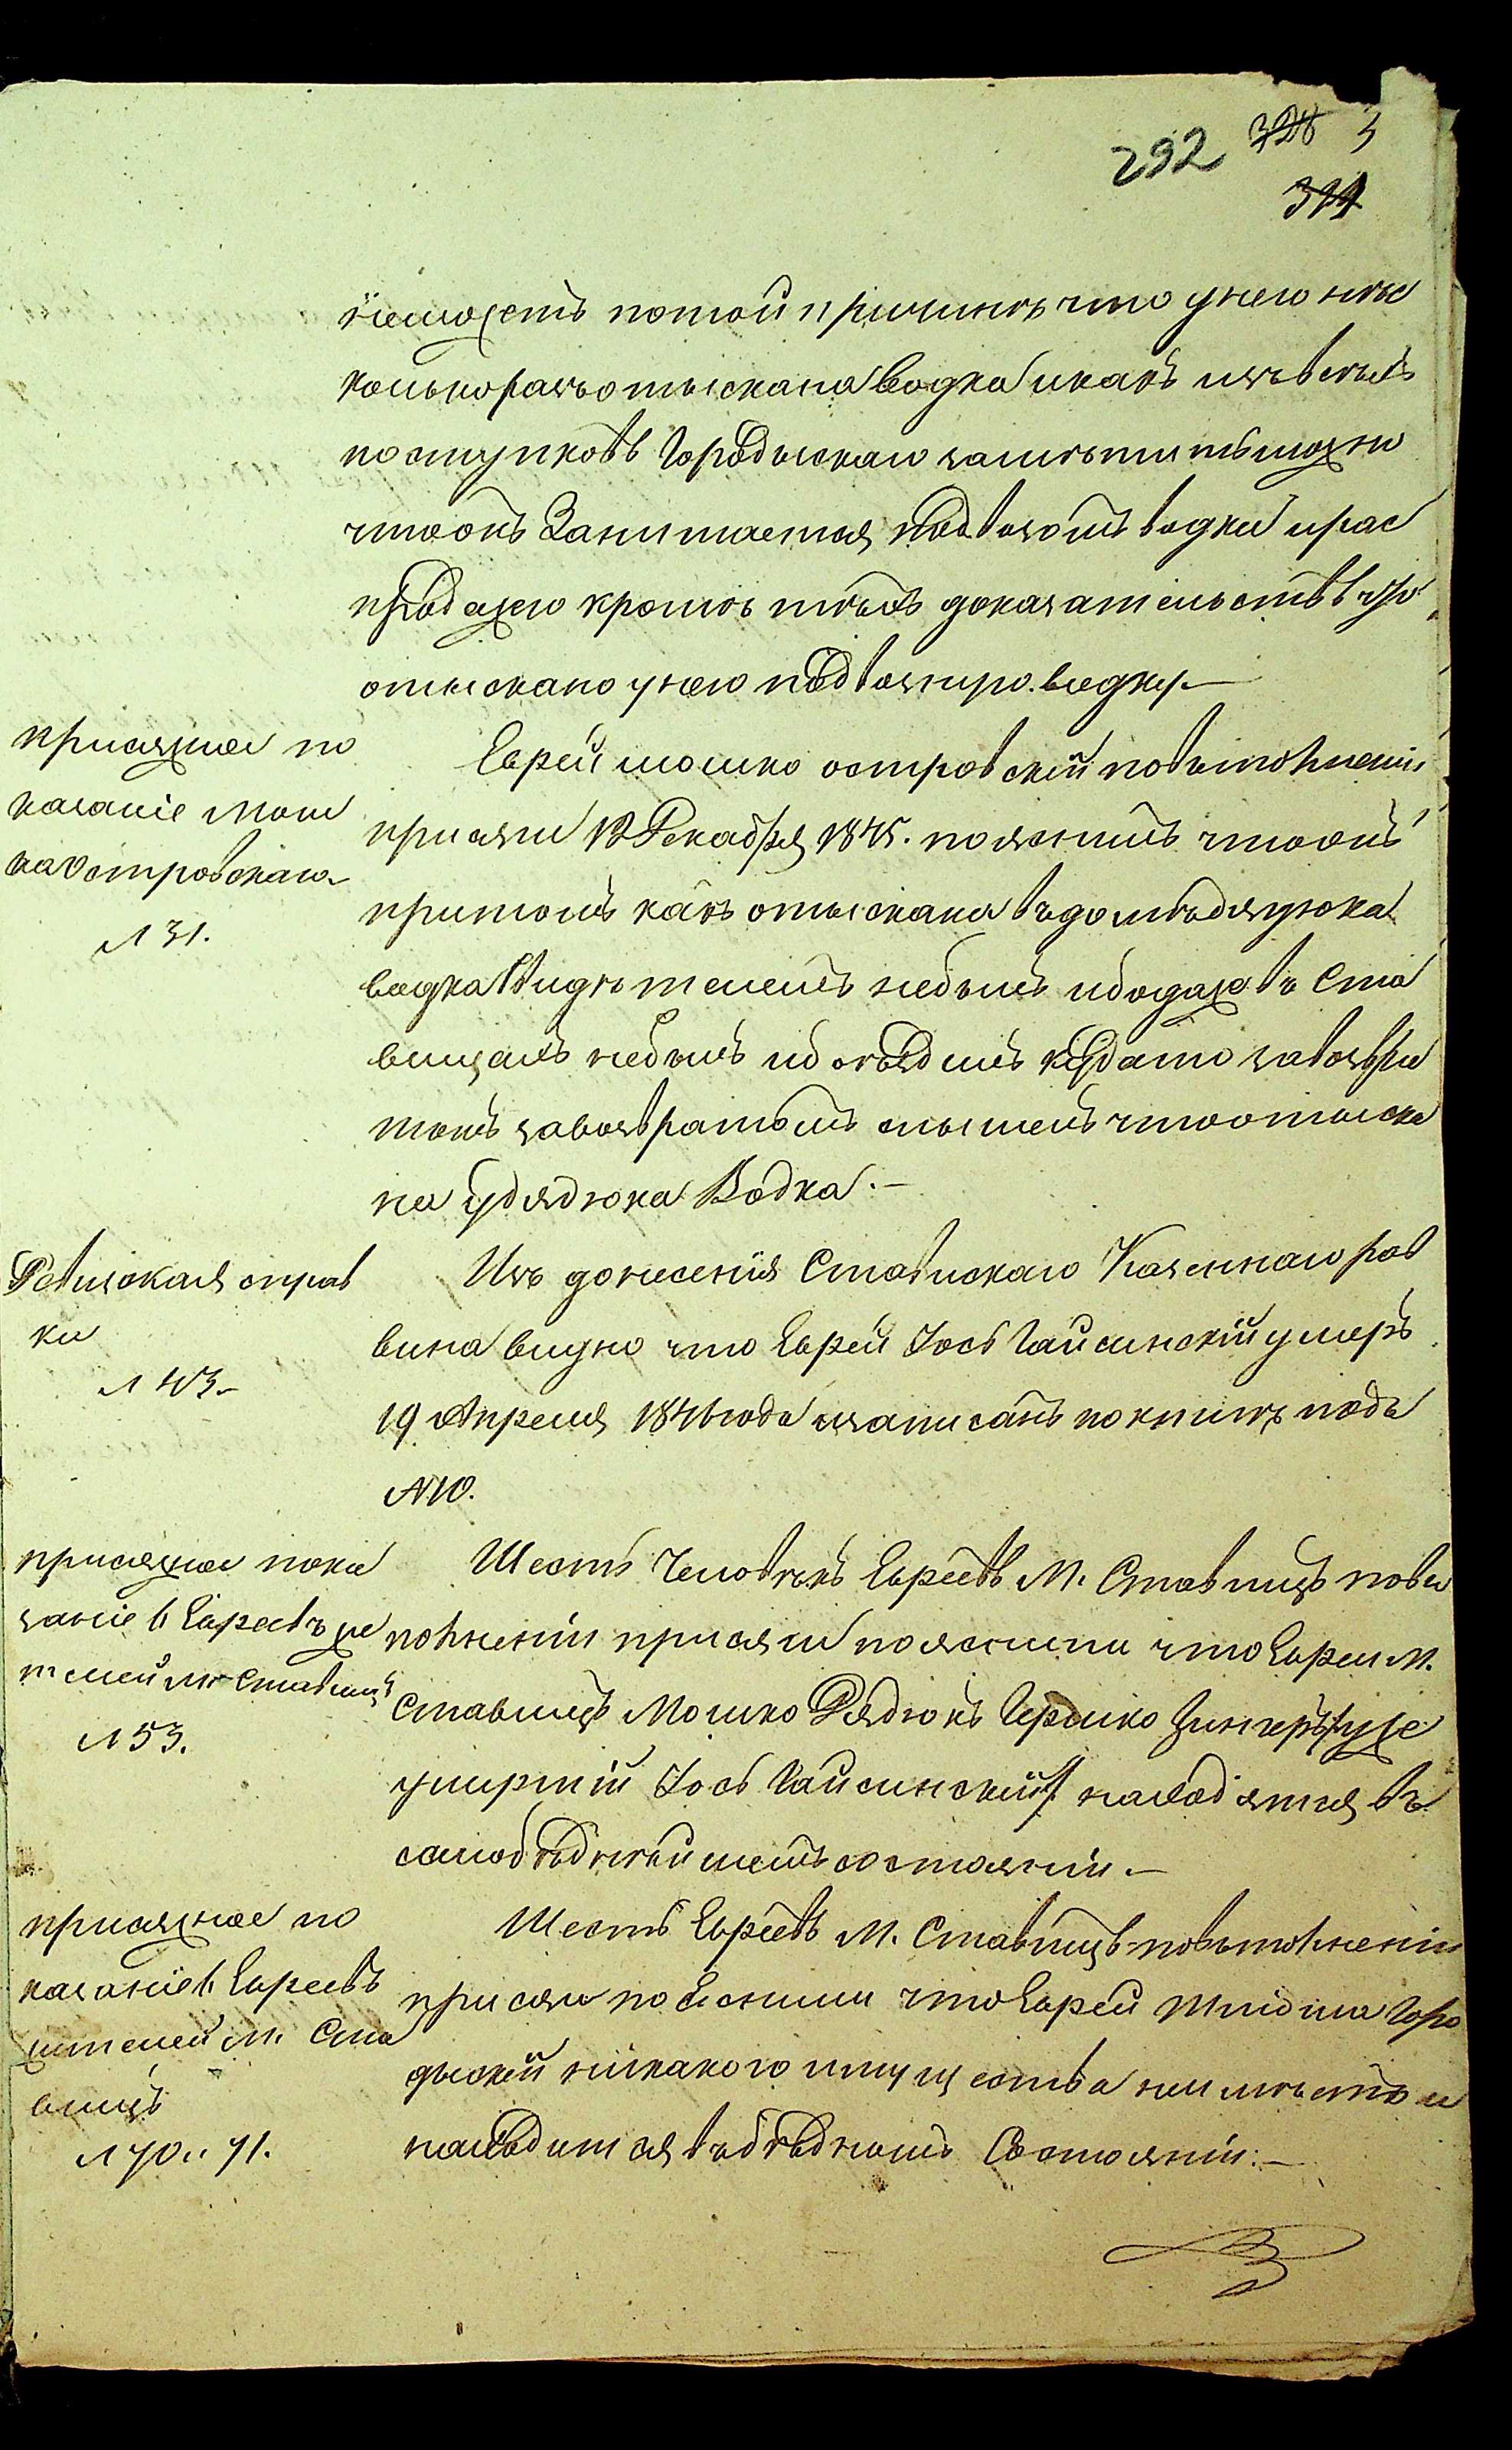 292 328 5
314
неможетъ потой причинѣ что унего нѣс
колькоразъ отыскана водка икакъ изъ всѣхъ
поступковъ Городыскаго замѣтить можно
что онъ Занимается подвозомъ водки ирас
продажею кромѣ тѣхъ доказательствъ что
отыскано унего подвозную водку.—
присяжное по
казаніе Мош
ка Островскаго
Л 31.
Еврей мошко островскій повыполненіи
присяги 12 Декабря 1845. пояснилъ что онъ
притомъ какъ отыскана въдомѣ дядюка
водка видѣтелемъ небылъ
небылъ
токъ завозвратомъ слышелъ что отыска
на у дядюка Водка.—
Ревизская справ
ка
Л 43.
Изъ донесенія Ставискаго Казеннаго рав
вина видно что Еврей Іось Гайсинскій умеръ
19 Апреля 1846 года изаписанъ по книгѣ подъ
№ 10.
присяжное пока
заніе 6 Евреевъ жи
телей м. Ставищъ
Л 53.
Шесть Человѣкъ Евреевъ М. Ставищъ повы
полненіи присяги пояснили что Евреи М.
Ставищъ Мошко Дядюкъ Гершко Зингеръ уже
умерший Іось Гайсинскій находятся въ
самобѣднѣйшемъ состояніи.—
присяжное по
казаніе 6 Евреевъ
жителей М. Ста
вищъ
Л 70 и 71.
Шесть Евреевъ М. Ставищъ повыполненіи
присяги пояснили что Еврей Горо
дыскій никакого имущества неимѣетъ и
находится въ бѣдномъ Состояніи.—